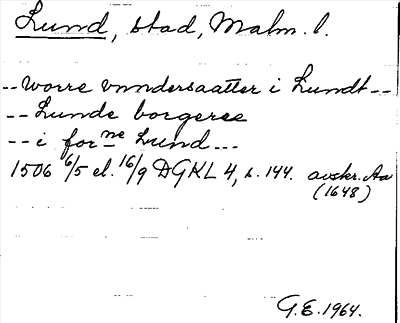 Lund, stad, Malm. l.
-- worre vnndersaatter i Lundt --
-- Lunde borgere
-- i for ne Lund ---
1506 6/5 el. 16/9 DGKL 4, s. 144. avskr. Aa
(1648)
G.E. 1964.